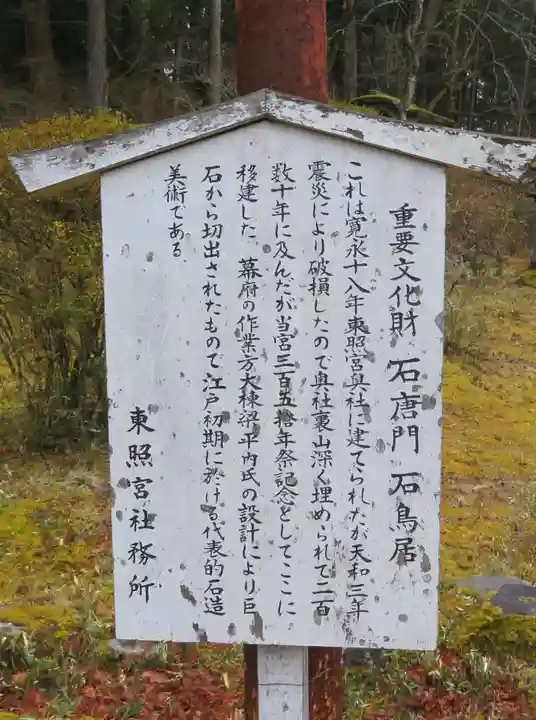 重要文化財 石唐門 石鳥居
これは寛永十八年東照宮奥社に建てられたが天和三年
震災により破損したので奥社裏山深く埋められて二百
数十年に及んだが当宮三百五拾年祭記念としてここに
移建した 幕府の作業方大棟梁平内氏の設計により巨
石から切出されたもので江戸初期に於ける代表的石造
美術である
東照宮社務所